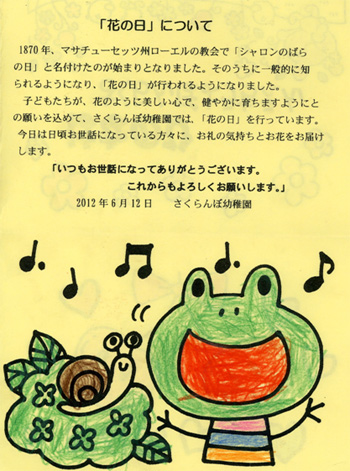 「花の日」について
1870 年、マサチューセッツ州ローエルの教会で「シャロンのばら
の日」と名付けたのが始まりとなりました。そのうちに一般的に知
られるようになり、「花の日」が行われるようになりました。
子どもたちが、花のように美しい心で、健やかに育ちますようにと
の願いを込めて、さくらんぼ幼稚園では、「花の日」を行っています。
今日は日頃お世話になっている方々に、お礼の気持ちとお花をお届け
します。
「いつもお世話になってありがとうございます。
これからもよろしくお願いします。」
2012 年 6 月 12 日　さくらんぼ幼稚園